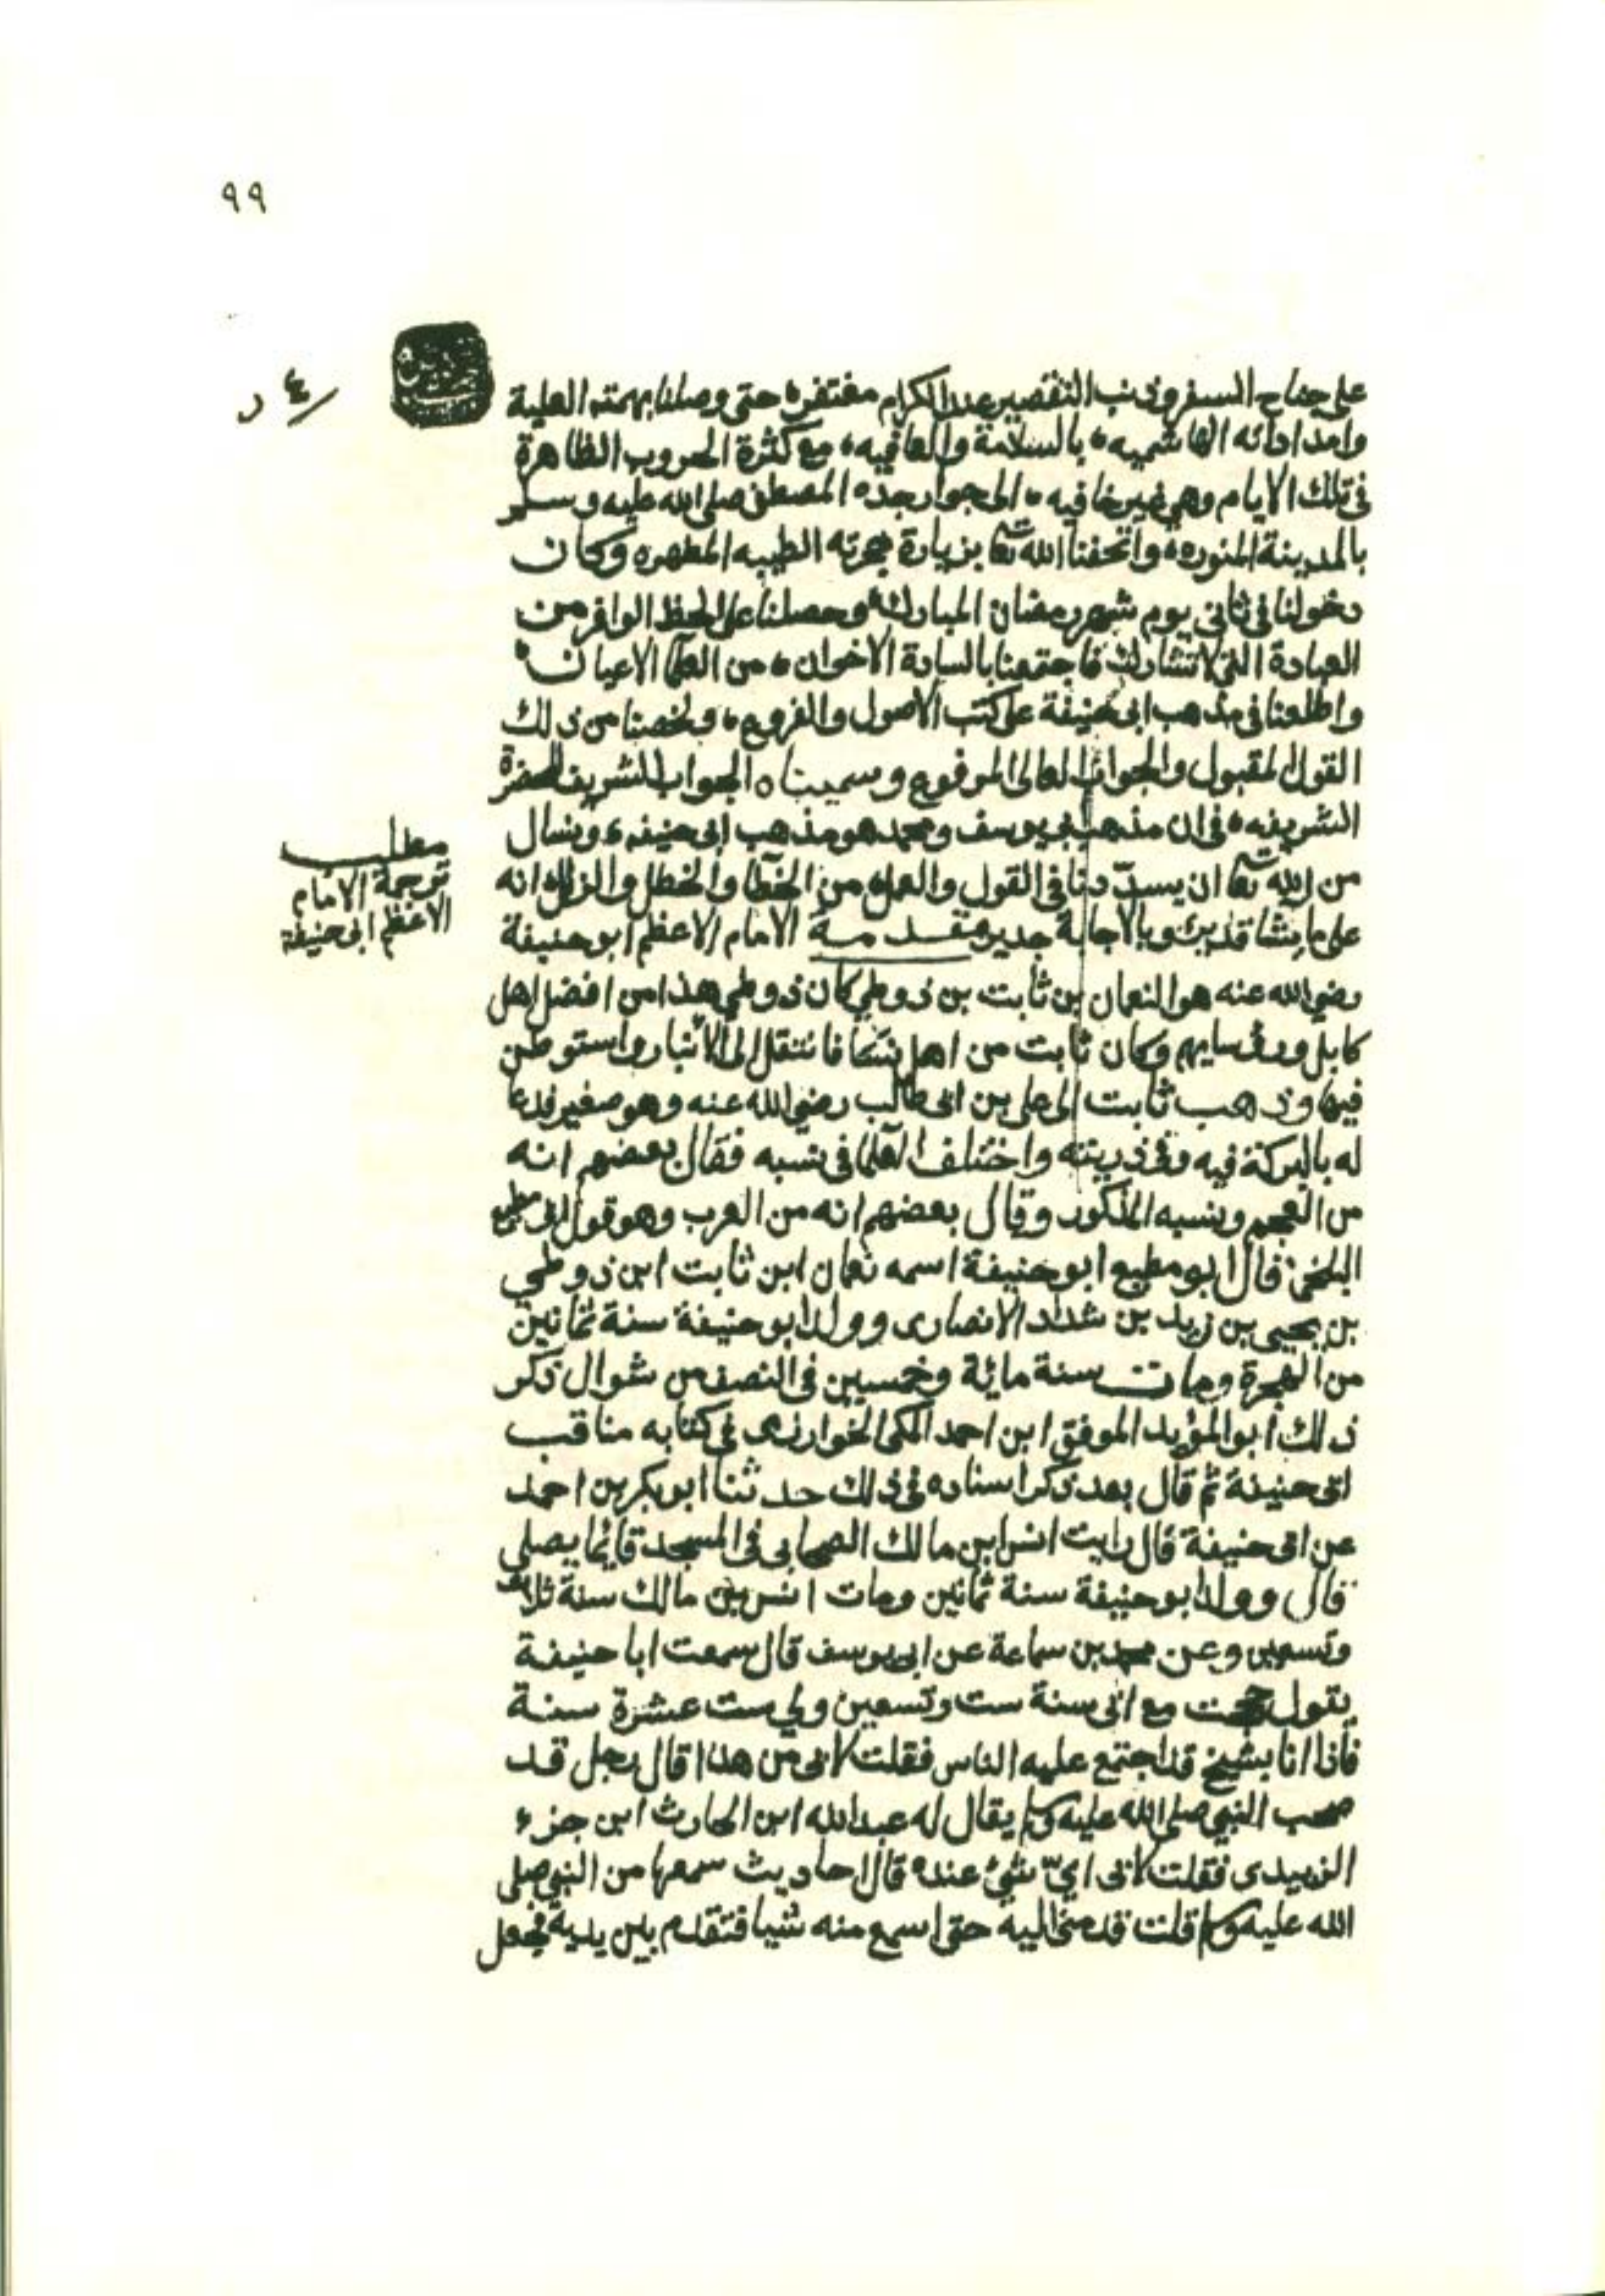 ٩٩
على جناح السفر وذنب التقصير عند الكرام مغتفره حتى وصلنا بهمته العلية
وامداداته الهاشميه، بالسلامة والعافيه، مع كثرة الحروب الظاهرة
في تلك الايام وهي غير خافيه، الى جوار جده المصطفى صلى الله عليه وسلم
بالمدينة المنوره، واتحفنا الله تعا بزيارة حجرته الطيبه المطهره وكان
دخولنا في ثاني يوم شهر رمضان المبارك، وحصلنا على الحظ الوافر من
العبادة التي لا تشارك فاجتمعنا بالسادة الاخوان، من العلما الاعيان،
واطلعنا في مذهب ابي حنيفة على كتب الاصول والفروع، ولخصنا من ذلك
القول المقبول والجواب العالى المرفوع وسميناه الجواب الشريف للحضرة
الشريفه، في ان مذهب ابي يوسف ومحمد هو مذهب ابي حنيفه، ونسال
من الله تعا ان يسدّدنا في القول والعمل، من الخطا والخطل والزلل، انه
على ما يشا قدير، وبالاجابة جدير مقدمة الامام الاعظم ابو حنيفة
مطلب
ترجمة الامام
الاعظم ابى حنيفة
رضي الله عنه هو النعمان بن ثابت بن زوطي كان زوطي هذا من افضل اهل
كابل ورؤسايهم وكان ثابت من اهل نسا فانتقل الى الانبار واستوطن
فيها وذهب ثابت الى علي بن ابى طالب رضي الله عنه وهو صغير فدعا
له بالبركة فيه وفي ذريته واختلف العلما في نسبه فقال بعضهم انه
من العجم ونسبه المذكور وقال بعضهم انه من العرب وهو قول ابى مطيع
البلخي قال ابو مطيع ابو حنيفة اسمه نعمان ابن ثابت ابن زوطي
بن يحيى بن زيد بن شداد الانصارى وولد ابو حنيفة سنة ثمانين
من الهجرة ومات سنة مائة وخمسين في النصف من شوال ذكر
ذلك ابو المؤيد الموفق ابن احمد المكي الخوارزمى في كتابه مناقب
ابى حنيفة ثم قال بعد ذكر اسناده في ذلك حدثنا ابو بكر بن احمد
عن ابى حنيفة قال رايت انس ابن مالك الصحابى في المسجد قايما يصلي
قال وولد ابو حنيفة سنة ثمانين ومات انس بن مالك سنة ثلاث
وتسعين وعن محمد بن سماعة عن ابى يوسف قال سمعت ابا حنيفة
يقول حججت مع ابى سنة ست وتسعين ولي ست عشرة سنة
فاذا انا بشيخ قد اجتمع عليه الناس فقلت لابى من هذا قال رجل قد
صحب النبي صلى الله عليه وسلم يقال له عبدالله ابن الحارث ابن جزء
الزبيدى فقلت لابى ايّ شيء عنده قال احاديث سمعها من النبي صلى
الله عليه وسلم قلت قدمني اليه حتى اسمع منه شيا فتقدم بين يديه فجعل